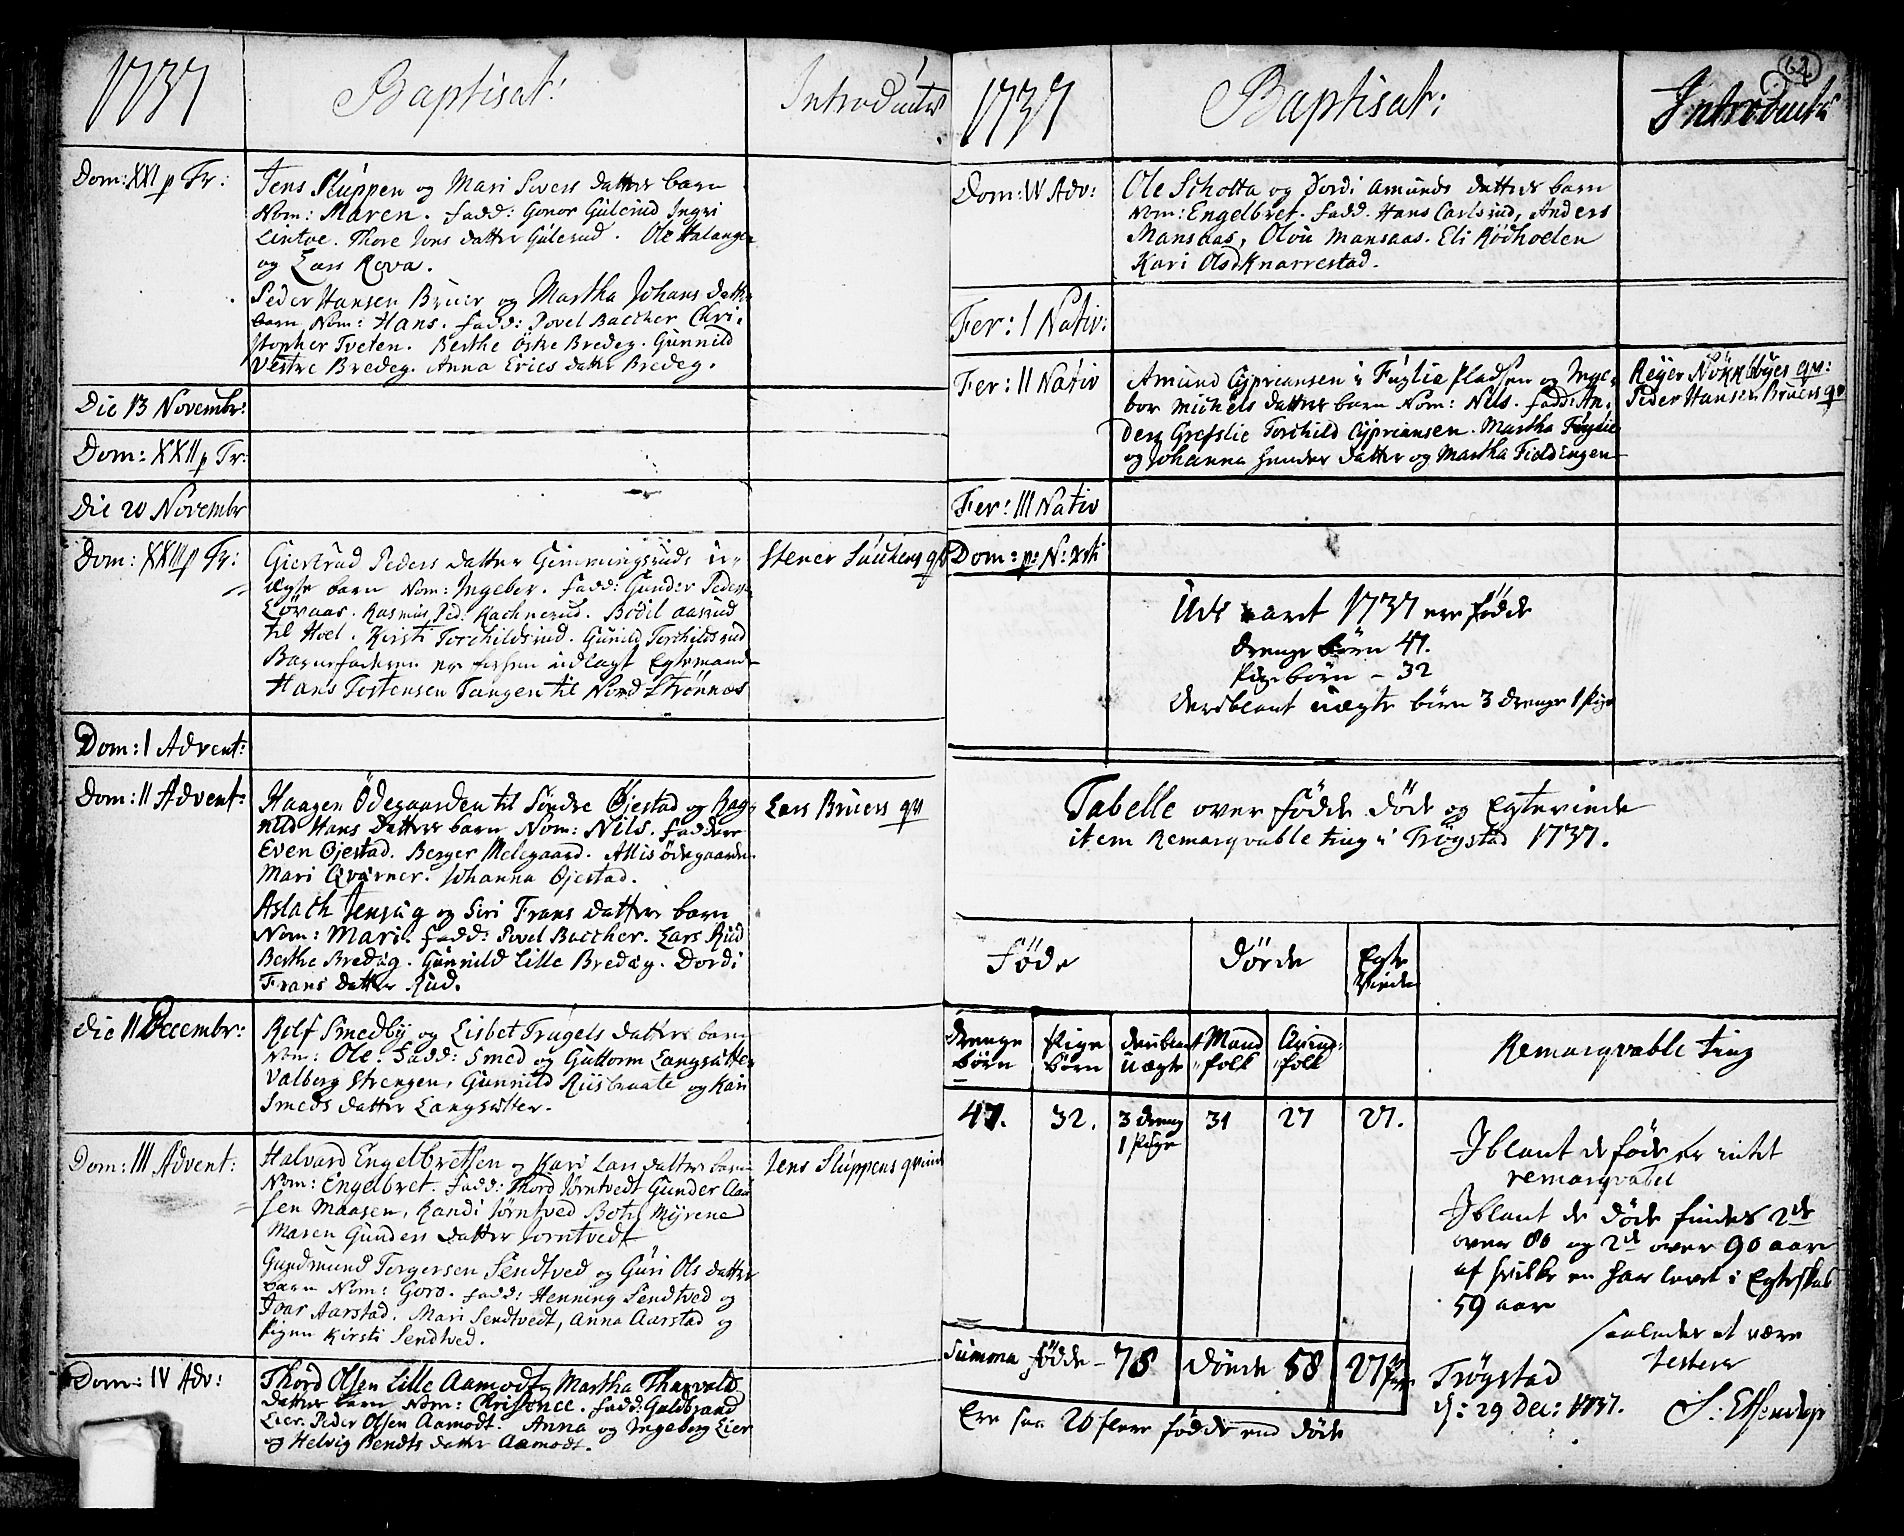 1737
Baptisat:
Introductæ
Dom: XXI p Tr:
Jens Sluppen og Mari Sivers datters barn
Nom: Maren. fadd: Gonor Gulerud Ingri
Lintoe. Thore Jons datter Gulerud. Ole Halangen
og Lars Rova.
Peder Hansen Bruer og Martha Johans datters
barn Nom: Hans. fadd: Povel Baccher Chri-
stopher Tveten. Berthe Østre Bredeg. Gunnild
Vestre Bredeg. Anna Erics datter Bredeg.
Die 13 Novembr:
Dom: XXII p Tr:
Die 20 Novembr
Dom: XXIII p Tr:
Giertrud Peders datter Gimmingsruds u-
ægte barn Nom: Ingeber. fadd: Gunder Peders
Løvaas. Rasmus Ped. Kachnerud. Bodil Aasrud
til Hoel. Kirsti Torchildsrud. Gunild Torchildsrud
Barnefaderen er udlagt Egtemand
Hans Tostensen Tangen til Nord Strønnæs
Stener Suckens qv
Dom: I Advent:
Dom: II Advent:
Haagen Ödegaarden til Søndre Øjestad og Rag-
nild Hans datters barn Nom: Nils. faddere
Even Øjestad. Berger Melegaard. Allis ødegaarden
Mari Qværner. Johanna Øjestad.
Lars Bruers qv
Aslach Jensen og Siri Frans datters barn
Nom: Mari. fadd: Povel Baccher. Lars Rud
Berthe Bredeg. Gunnild Lille Bredeg. Dordi
Frans datter Rud.
Die 11 Decembr:
Rolf Smedby og Lisbet Trugels datters barn
Nom: Ole. fadd: Smed og Guttorm Langsætter
Valberg Strengen, Gunnild Riisbraate og Kari
Smeds datter Langsætter.
Dom: III Advent:
Halvard Engelbretsen og Kari Lars datters barn
Nom: Engelbret. fadd: Thord Jørntvedt Gunder Aan-
sen Maasen, Randi Jørntved Botel Myrene
Maren Gunders datter Jorntvedt
Jens Sluppens qvinde
Gundmund Torgersen Sendtved og Guri Ols datters
barn Nom: Goro. fadd: Henning Sendtved og
Joar Aarstad. Mari Sendtvedt, Anna Aarstad og
pigen Kirsti Sendtved.
Dom: IV Adv:
Thord Olsen Lille Aamodt og Martha Thorvalds
datters barn Nom: Christence. fadd: Guldbrand
Lier. Peder Olsen Aamodt. Anna og Ingeborg Lier
og Helvig Bendts datter Aamodt.
62
1737
Baptisat:
Introductæ
Dom: IV Adv:
Ole Scholta og Jordi Amunds datters barn
Nom: Engelbret. fadd. Hans Carlsrud, Anders
Mansaas, Olou Mansaas. Eli Rødhoelen
Kari Olsd Knarrestad.
Fer: I Nativ:
Fer: II Nativ
Amund Cypriansen i Fuglie Pladsen og Inge-
bor Michels datters barn Nom: Nils. fadd: An-
ders Grefslie Torchild Cypriansen. Martha Fuglie
og Johanna Gunders datter og Martha Fieldengen
Reyer Nökkebyes qv:
Peder Hansen Bruers qv
Fer: III Nativ
Dom: p: N: Xsti
Udi aaret 1737 ere fødde
drenge børn 47.
Pige børn - 32
deriblant uægte børn 3 drenge 1 Pige
Tabelle over fødde døde og Egteviede
item Remarqvable ting i Trögstad 1737.
Føde
Dørde
Egte
Viede
Remarqvable ting
Drenge
børn
Pige
børn
deriblant
uægte
Mand
folk
Qvind:
folk
47.
32.
3 dreng
1 Pige
31
27
27.
Iblant de føde er intet
remarqvabel
Iblant de døde findes 2de
over 80 og 2de over 90 aar
af hvilke en har levet i Egteskab
59 aar
saaledes at være
testerer
Summa fødde - 78
dørde 58
27 par
Trögstad
d: 29 Dec: 1737.
Ere saa 20 flere fødde end døde